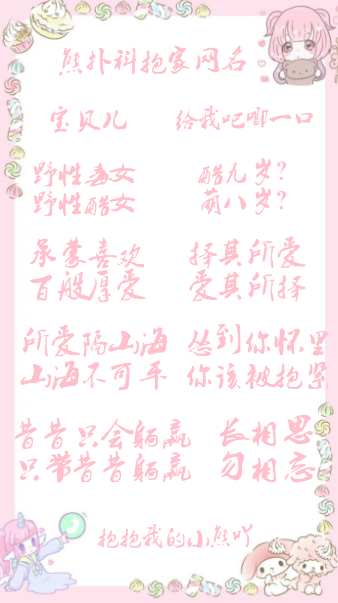 熊扑科抱家网名
宝贝儿 给我吧唧一口
野性毒女 酷九岁?
野性酷女 萌八岁?
承蒙喜欢 择其所爱
百般厚爱 爱其所择
所爱隔山海 怂到你怀里
山海不可平 你该被抱紧
昔昔只会躺赢 长相思
只带昔昔躺赢 勿相忘
抱抱我的小熊吖